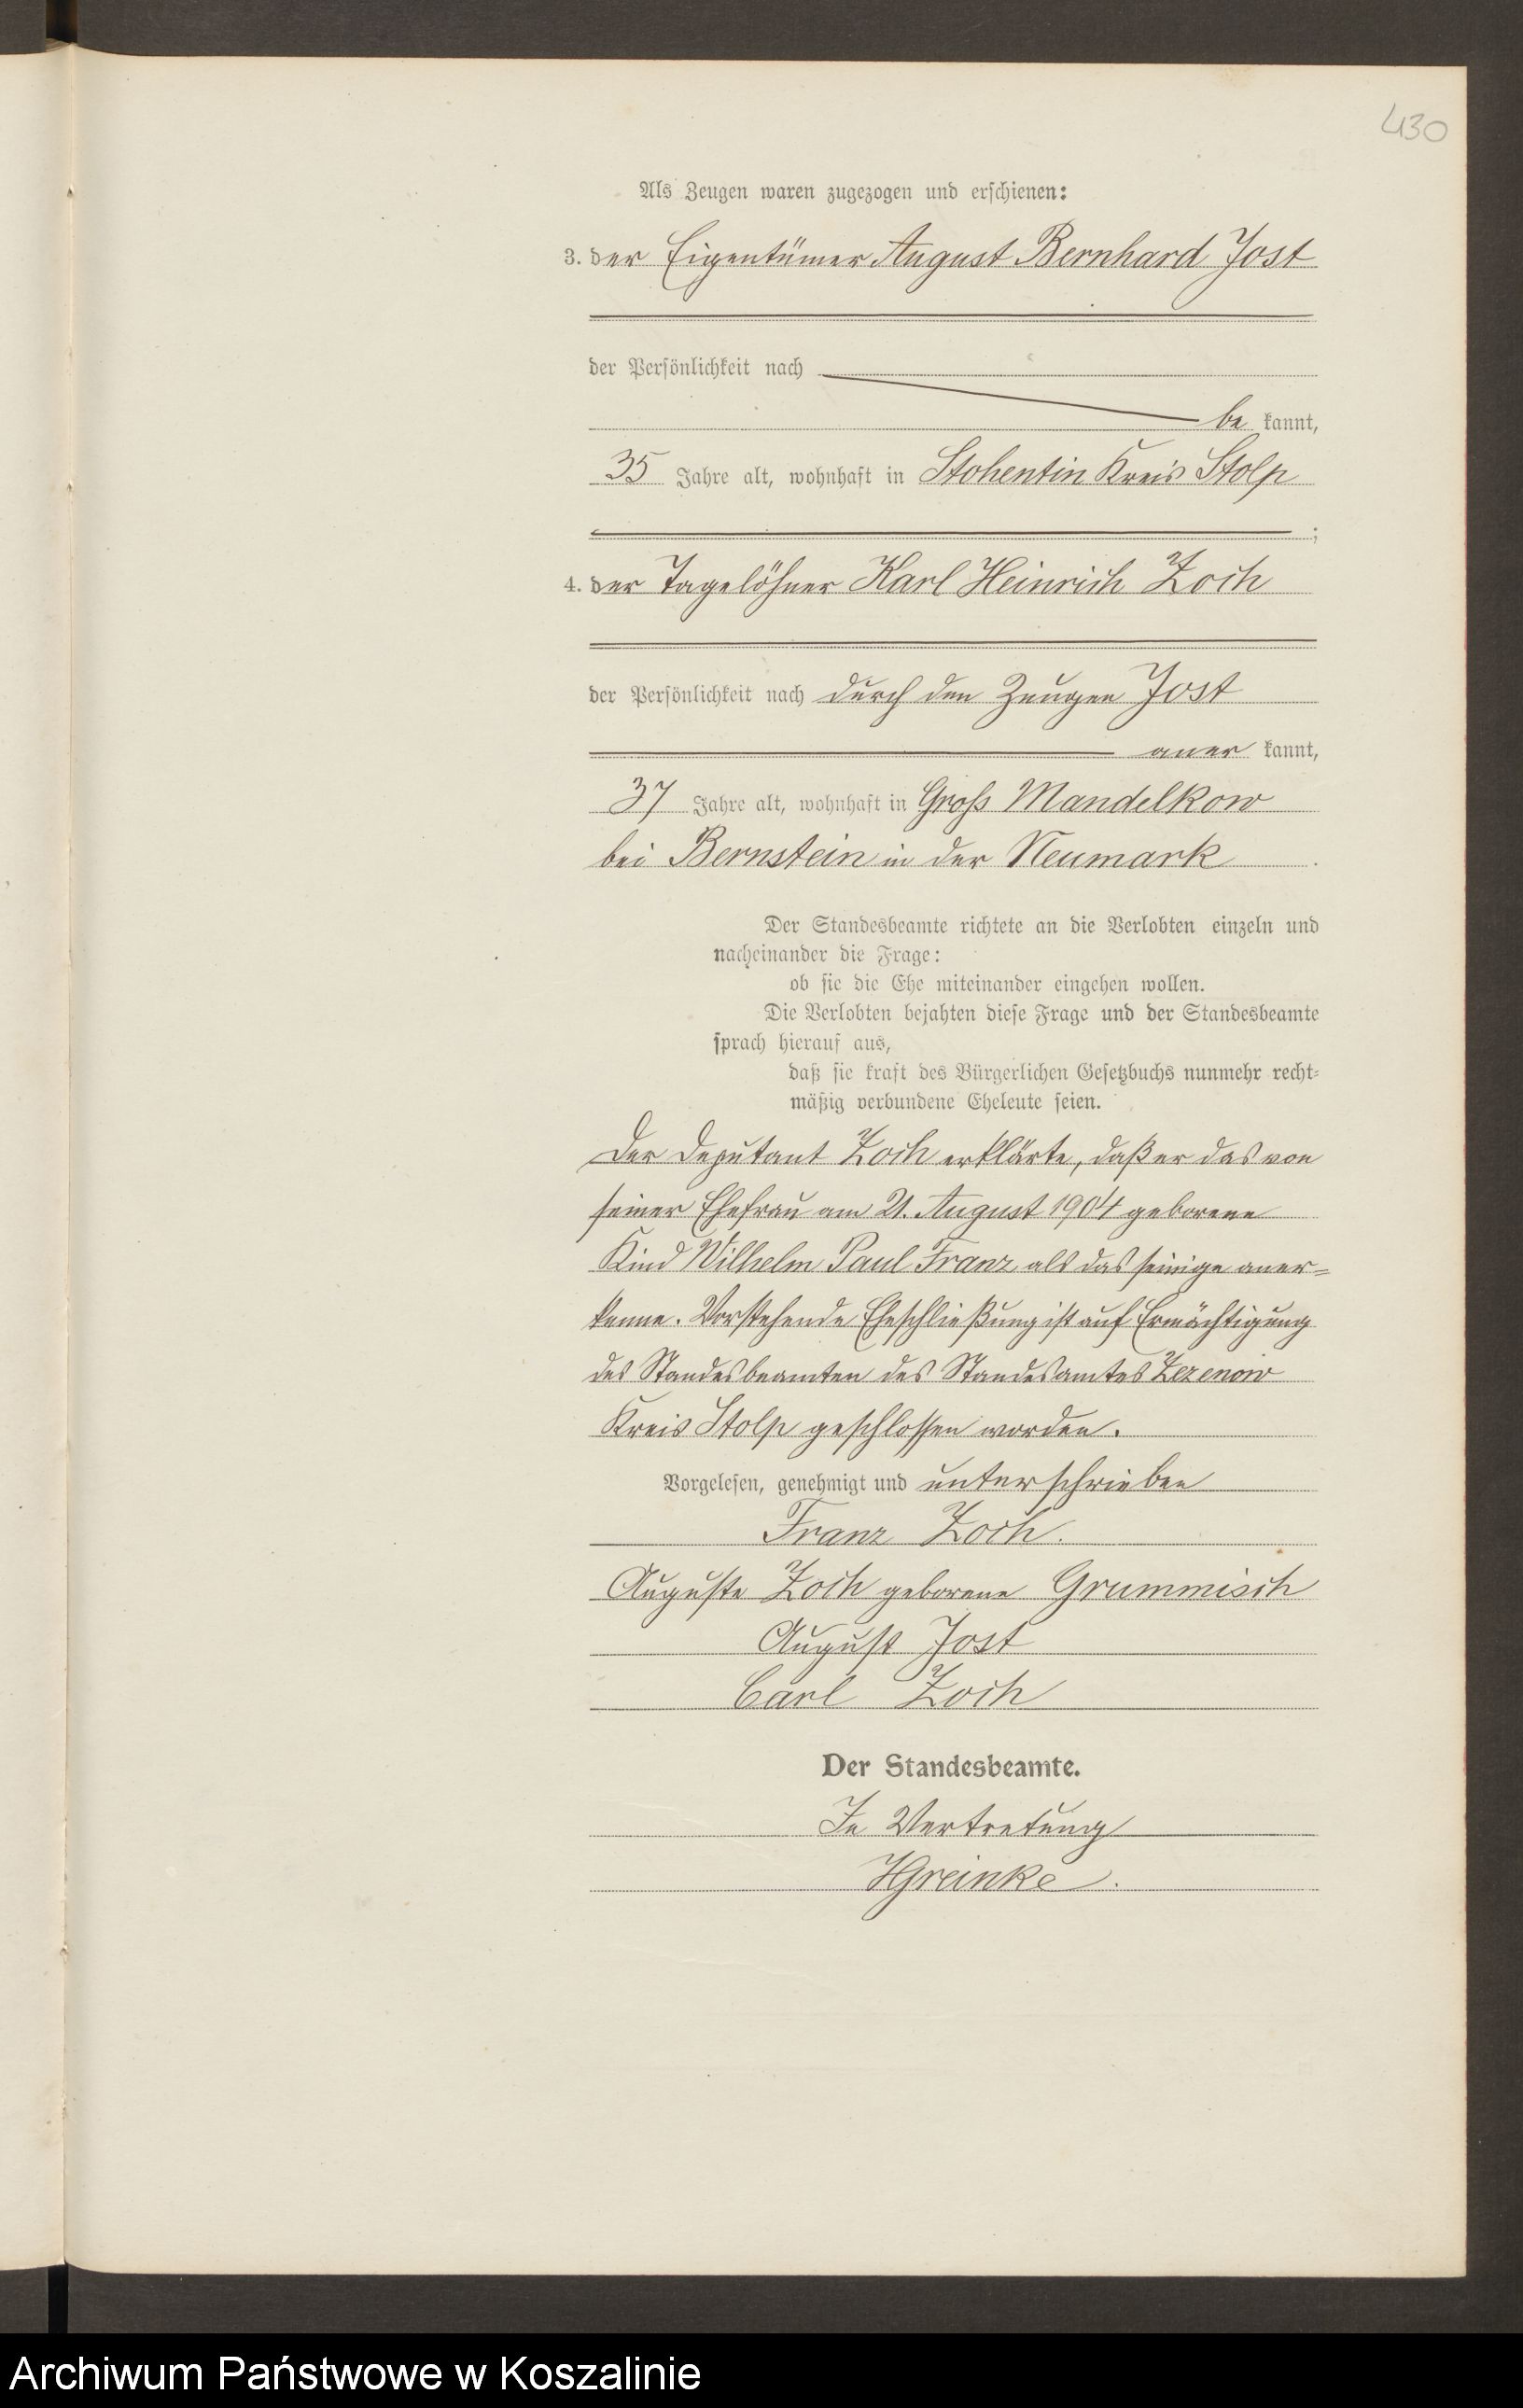 430
Als Zeugen waren zugezogen und erschienen:
3. der Eigentümer August Bernhard Jost
der Persönlichkeit nach
be kannt,
35 Jahre alt, wohnhaft in Stohentin Kreis Stolp
;
4. der Tagelöhner Karl Heinrich Zoch
der Persönlichkeit nach durch den Zeugen Jost
aner kannt,
37 Jahre alt, wohnhaft in Groß Mandelkow
bei Bernstein in der Neumark.
Der Standesbeamte richtete an die Verlobten einzeln und
nacheinander die Frage:
ob sie die Ehe miteinander eingehen wollen.
Die Verlobten bejahten diese Frage und der Standesbeamte
sprach hierauf aus,
daß sie kraft des Bürgerlichen Gesetzbuchs nunmehr recht-
mäßig verbundene Eheleute seien.
Der Deputant Zoch erklärte, daß er das von
seiner Ehefrau am 21. August 1904 geborene
Kind Wilhelm Paul Franz als das seinige aner=
kenne. Vorstehende Eheschließung ist auf Ermächtigung
des Standesbeamten des Standesamtes Zezenow
Kreis Stolp geschlossen worden.
Vorgelesen, genehmigt und unterschrieben
Franz Zoch.
Auguste Zoch geborene Grummisch
August Jost
Carl Zoch
Der Standesbeamte.
In Vertretung
HGreinke.
Archiwum Państwowe w Koszalinie